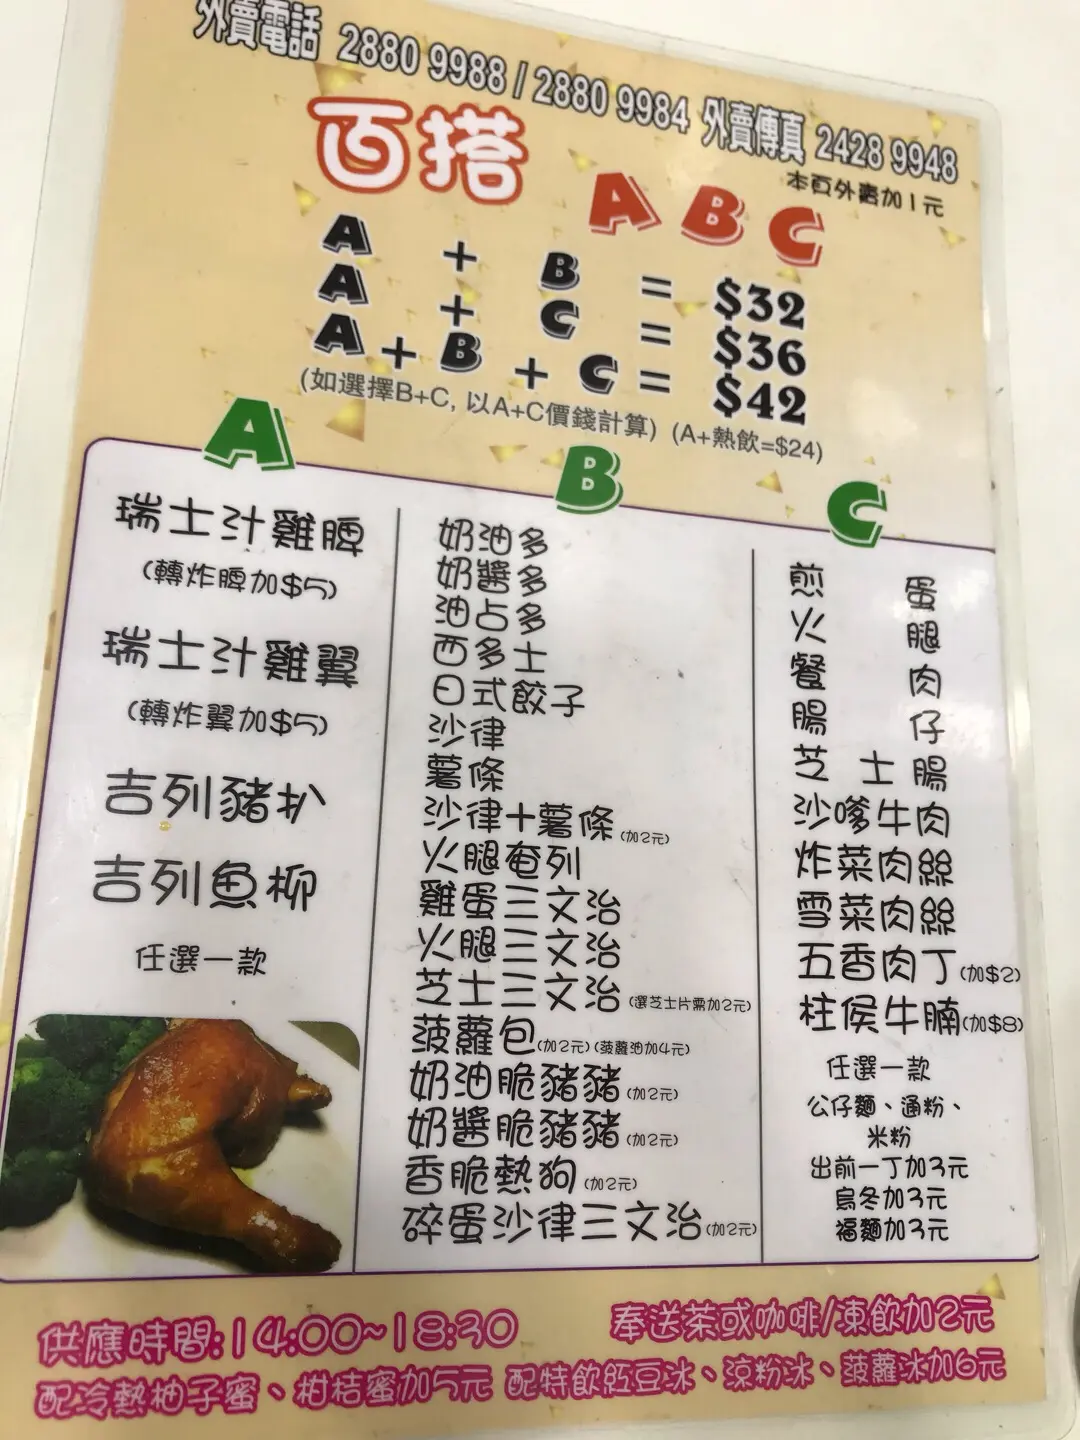 外賣電話 2880 9988 / 2880 9984 外賣傳真 2428 9948
本頁外賣加1元
百搭 ABC
A + B = $32
A + C = $36
A + B + C = $42
(如選擇B+C, 以A+C價錢計算) (A+熱飲=$24)
A
瑞士汁雞脾
(轉炸脾加$5)
瑞士汁雞翼
(轉炸翼加$5)
吉列豬扒
吉列魚柳
任選一款
B
奶油多
奶醬多
油占多
西多士
日式餃子
沙律
薯條
沙律+薯條(加2元)
火腿奄列
雞蛋三文治
火腿三文治
芝士三文治(選芝士片需加2元)
菠蘿包(加2元)(菠蘿油加4元)
奶油脆豬豬(加2元)
奶醬脆豬豬(加2元)
香脆熱狗(加2元)
碎蛋沙律三文治(加2元)
C
煎蛋
火腿
餐肉
腸仔
芝士腸
沙嗲牛肉
炸菜肉絲
雪菜肉絲
五香肉丁(加$2)
柱侯牛腩(加$8)
任選一款
公仔麵、通粉、
米粉
出前一丁加3元
烏冬加3元
福麵加3元
供應時間:14:00~18:30
奉送茶或咖啡/凍飲加2元
配冷熱柚子蜜、柑桔蜜加5元 配特飲紅豆冰、涼粉冰、菠蘿冰加6元